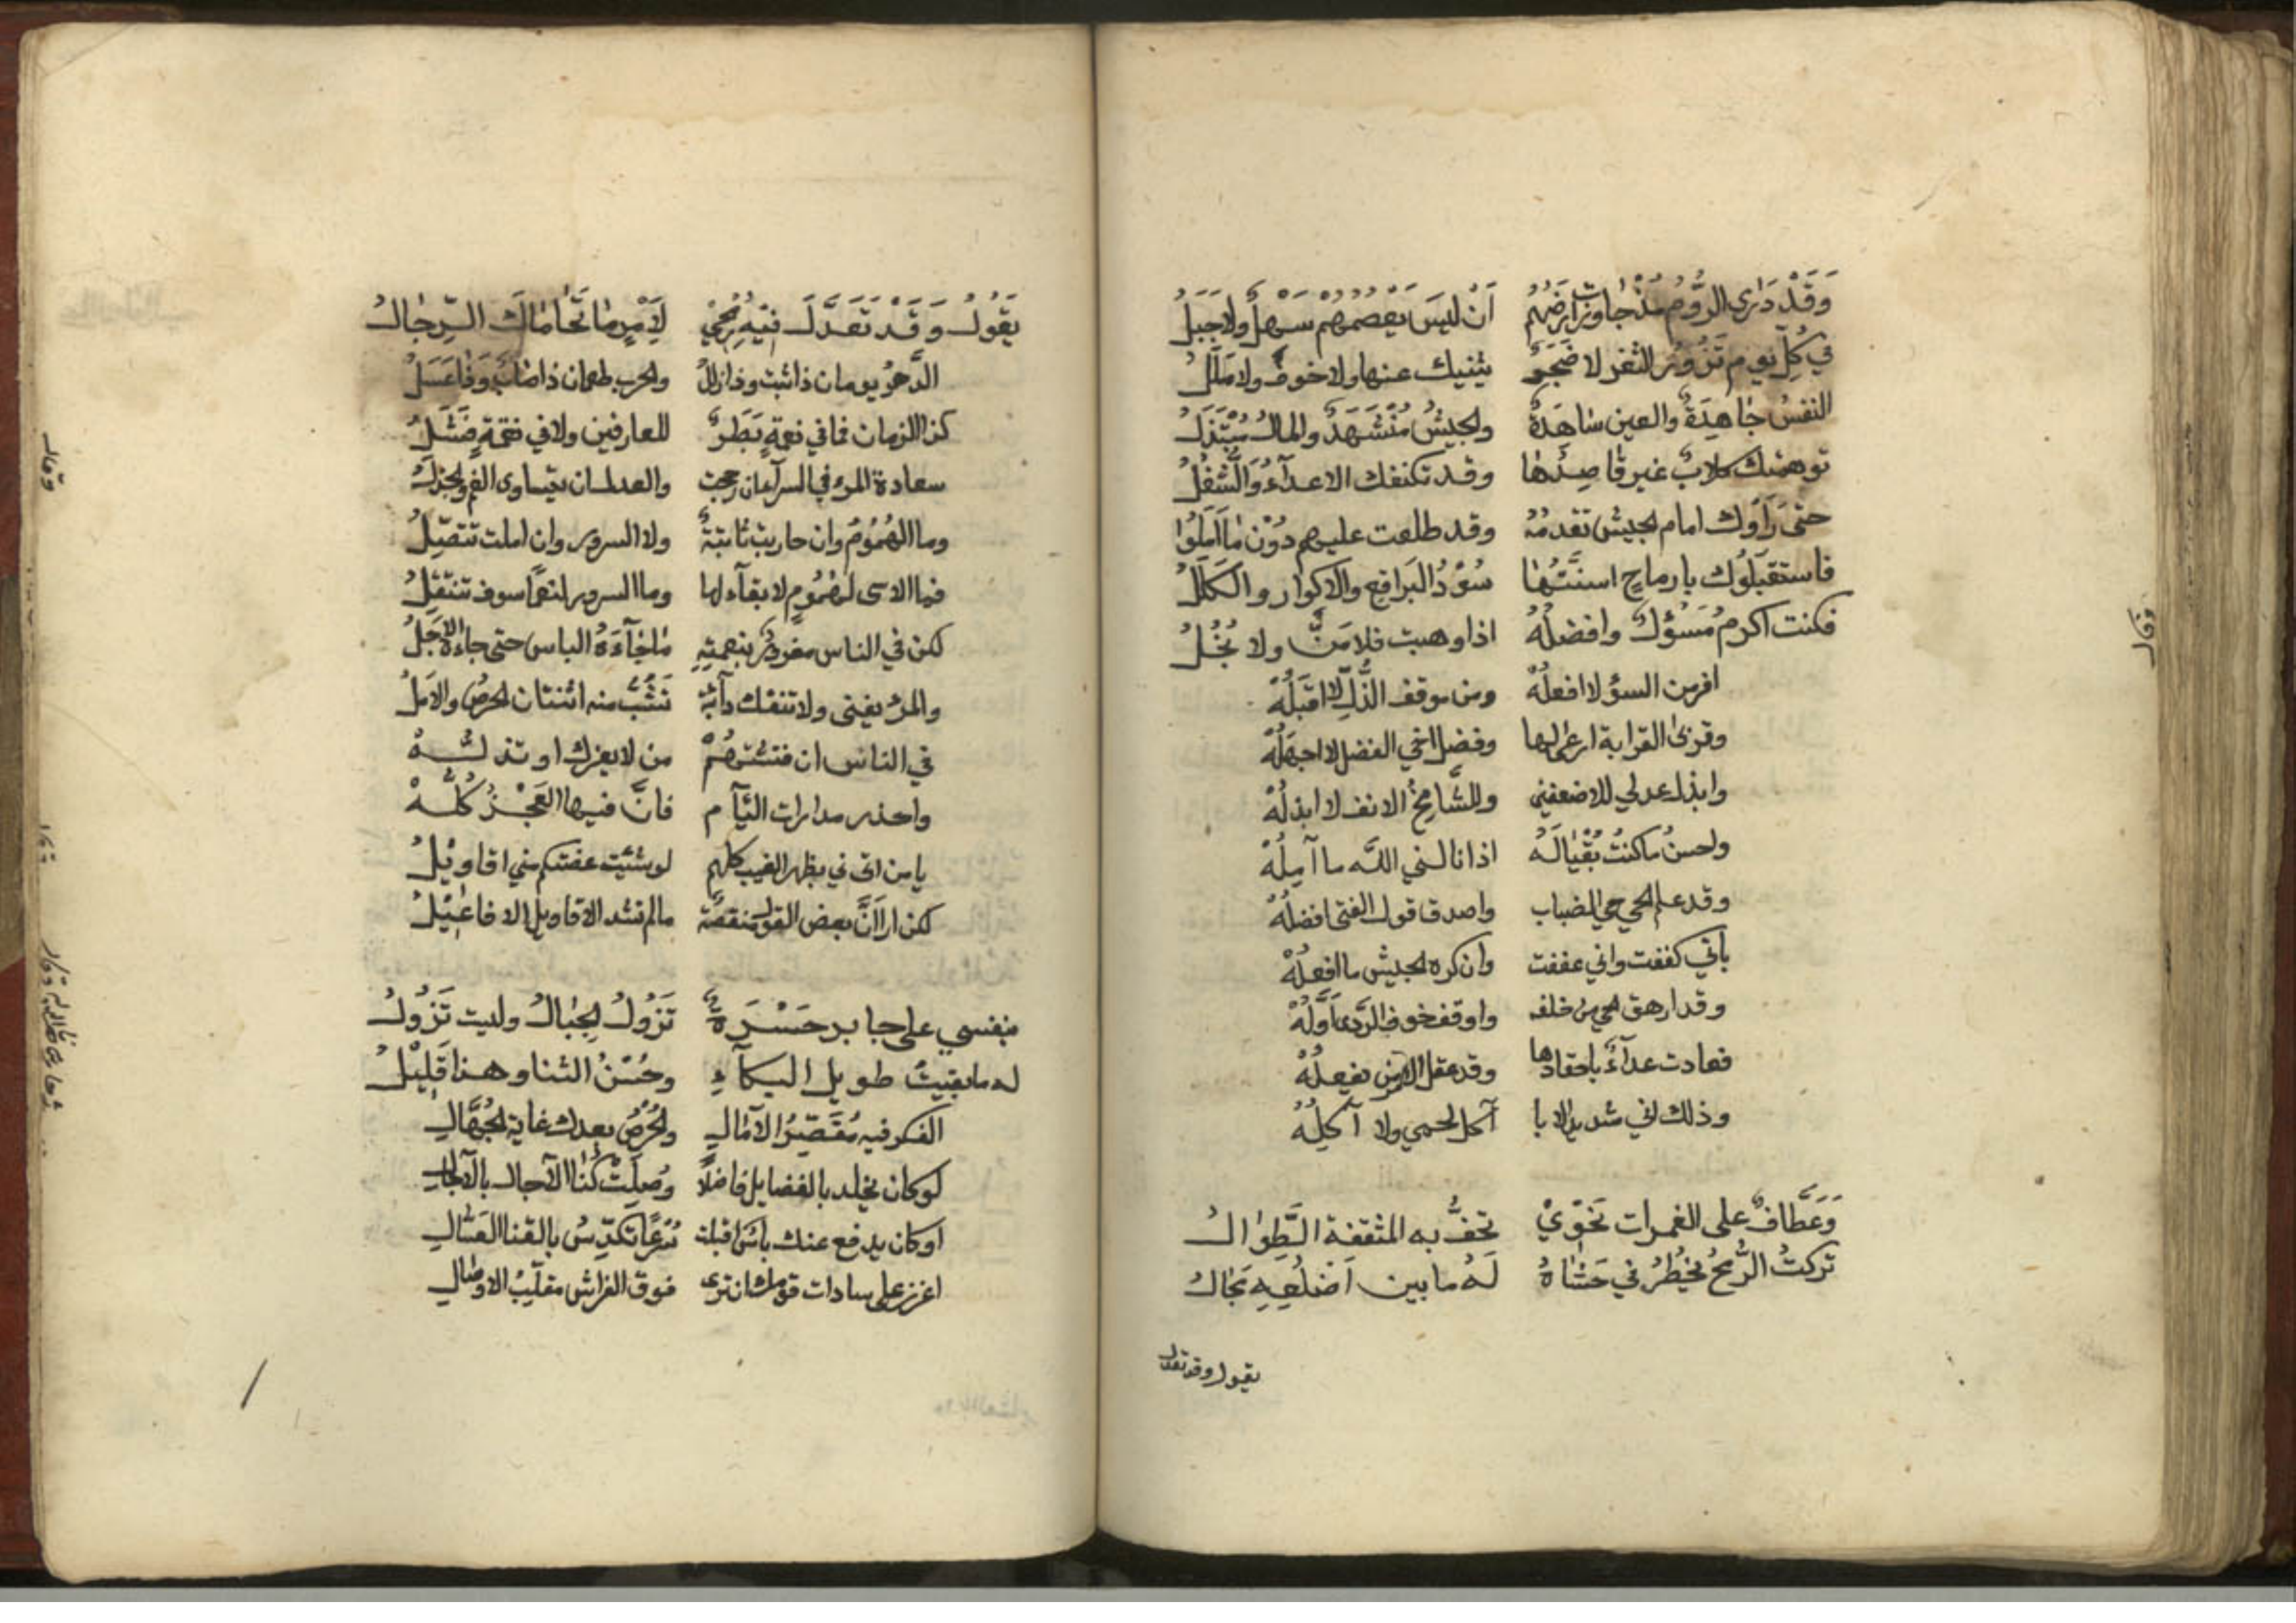 وَقَدْ دَرَى الرُّومُ مُذْ جَاوَرْتَ اَرْضَهُم اَنْ لَيسَ يَعْصِمُهُمْ سَهْلٌ ولا جَبَلُ
في كُلِّ يوم تَزُورُ الثغر لا ضَجَرٌ يثنيك عنها ولا خوفٌ ولا مَلَلُ
النفسُ جَاهِدَةٌ والعين سَاهَدَةٌ والجيشُ مُنْشَهَدٌ والمالُ مُبْتَذَلُ
توهمتك كلابٌ غير قاصِدُهَا وقد تكنفك الاعدآءُ وَالشُغُلُ
حتى رَأَوك امام الجيش تقدمُهُ وقد طلعت عليهم دُوْن مَا اَمَلُوا
فاستقبَلُوك بارماحٍ اسنَّتُهَا سُوْدُ البَراقِعِ والاكوار والكَلَلُ
فكنت اكرمُ مَسْؤُلٍ وافضلُهُ اذا وهبت فلا مَنٌّ ولا بُخُلُ
افر من السؤ لا افعلُهْ ومن موقف الذُّلِّ لا اقبَلُهْ
وقربى القرابة ارعى لها وفضل اخي الفضل لا اجهَلُهْ
وابذل عدلي للاضعفين وللشَّامخُ الانف لا ابذلُهْ
ولحسنُ ما كنتُ بُقْيَا لَهُ اذا نالني اللَّه ما آمِلُهْ
وقد علم الحي حي الضباب واصدق قول الفتى افضلُهْ
باني كففت واني عففت وان كره الجيش ما افعلُهْ
وقد ارهق الحي من خلفه واوقف خوف الرَّدى اَوَّلُهْ
فعادت عدآءً باحقادها وقد عقل الامن يفعلُهْ
وذلك اني شديد الابا آكل لحمي ولا آكلُهْ
وَعَطَّافٌ على الغمرات نَحْوِيْ تحفُّ به المثقفة الطِّوَالُ
تركتُ الرُّمحُ يخْطُرُ في حَشَاهُ لَهُ ما بين اَضْلُعِهِ مَجَالُ
يقول وقد تعدل
وقال
يَقُولُ وَقَدْ تَعَدَّلَ فِيْهِ رُمْحِيْ لِاَمْرٍ مَا تَحَامَاكَ الرِّجَالُ
الدَّهرُ يومان ذا ثبت وذا زلَلُ والحرب طعمان ذا صَابٌ وَذَا عَسَلُ
كذا الزمان فما في نعمةٍ بَطَرٌ للعارفين ولا في نقمةٍ فَشَلُ
سعادة المرء في السرآء ان رجحت والعدل ان يتساوى الغم والجذلُ
وما الهُمُوُمُ وان حاربتَ ثابتةٌ ولا السرور وان املت تتصِّلُ
فما الاسى لهُمُومٍ لا بقآء لها وما السرور لنعمًا سوف تنتقلُ
لكن في الناس مغرورٌ بنعمتِهِ مَا جَآءَهُ الياس حتى جاءهُ الاَجَلُ
والمرء يفنى ولا تنفك دآئبة تَشُبُّ منه اثنتان الحرصُ والاَملُ
في الناس ان فتشْتَهُمْ من لا يعزك او تذلُّهُ
واحذر مدارات اللئآم فانَّ فيها العَجْزُ كُلُّهْ
يا من اتاني بظهر الغيب كلهم لو شئيت عفتكم مني اقاويْلُ
لكن ارا اَنَّ بعض القول منقصة ما لم تشد الاقاويل الافاعيْلُ
بنفسي على جابر حَسْرَةٌ تَزُوْلُ الجِبَالُ وليت تَزُولُ
له ما بقيتُ طويل البكآءِ وحُسْنُ الثنا وهذا قَلِيْلُ
الفكر فيه مُقَصِّرُ الآمَالِ والحُرْصُ بعدك غاية الجُهَّالِ
لو كان يخلد بالفضايل فاضلًا وُصِلَتْ لَكَ الآجال بالآجالِ
او كان يدفع عنك باسٌ اقبلت شُرَّعًا تكدِّسُ بالقنا العَسَّالِ
اعزز على سادات قومك ان ترى فوق الفراش مقلّبُ الاوصَالِ
وقال